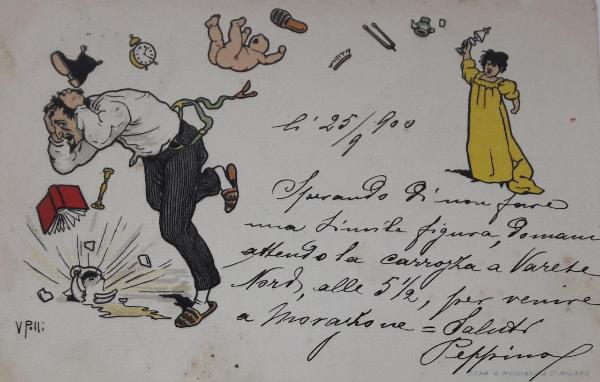 li 25/9 900
Sperando di non fare
una simile figura, domani
attendo la carrozza a Varese
Nord, alle 5 1/2, per venire
a Morazzone = Saluti
Peppino
V Polli
STAB. G. MODIANO & Cº MILANO